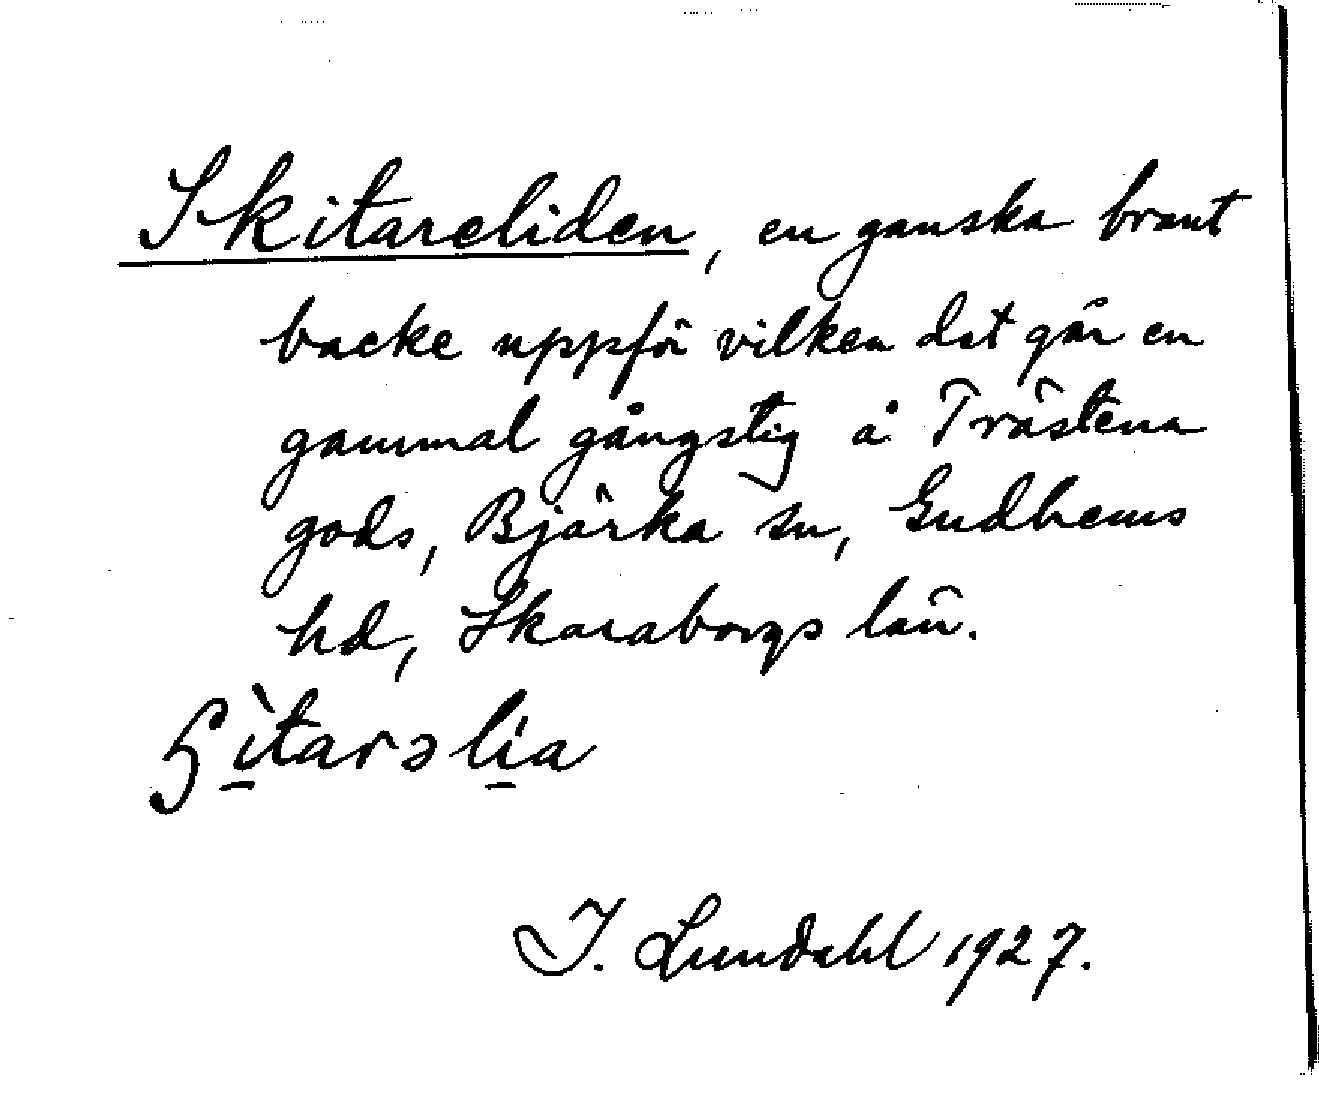 Skitareliden, en ganska brant
backe uppför vilken det går en
gammal gångstig å Trästena
gods, Bjärka sn, Gudhems
hd, Skaraborgs län.
ʃì̠tarəlí̠a
I. Lundahl 1927.